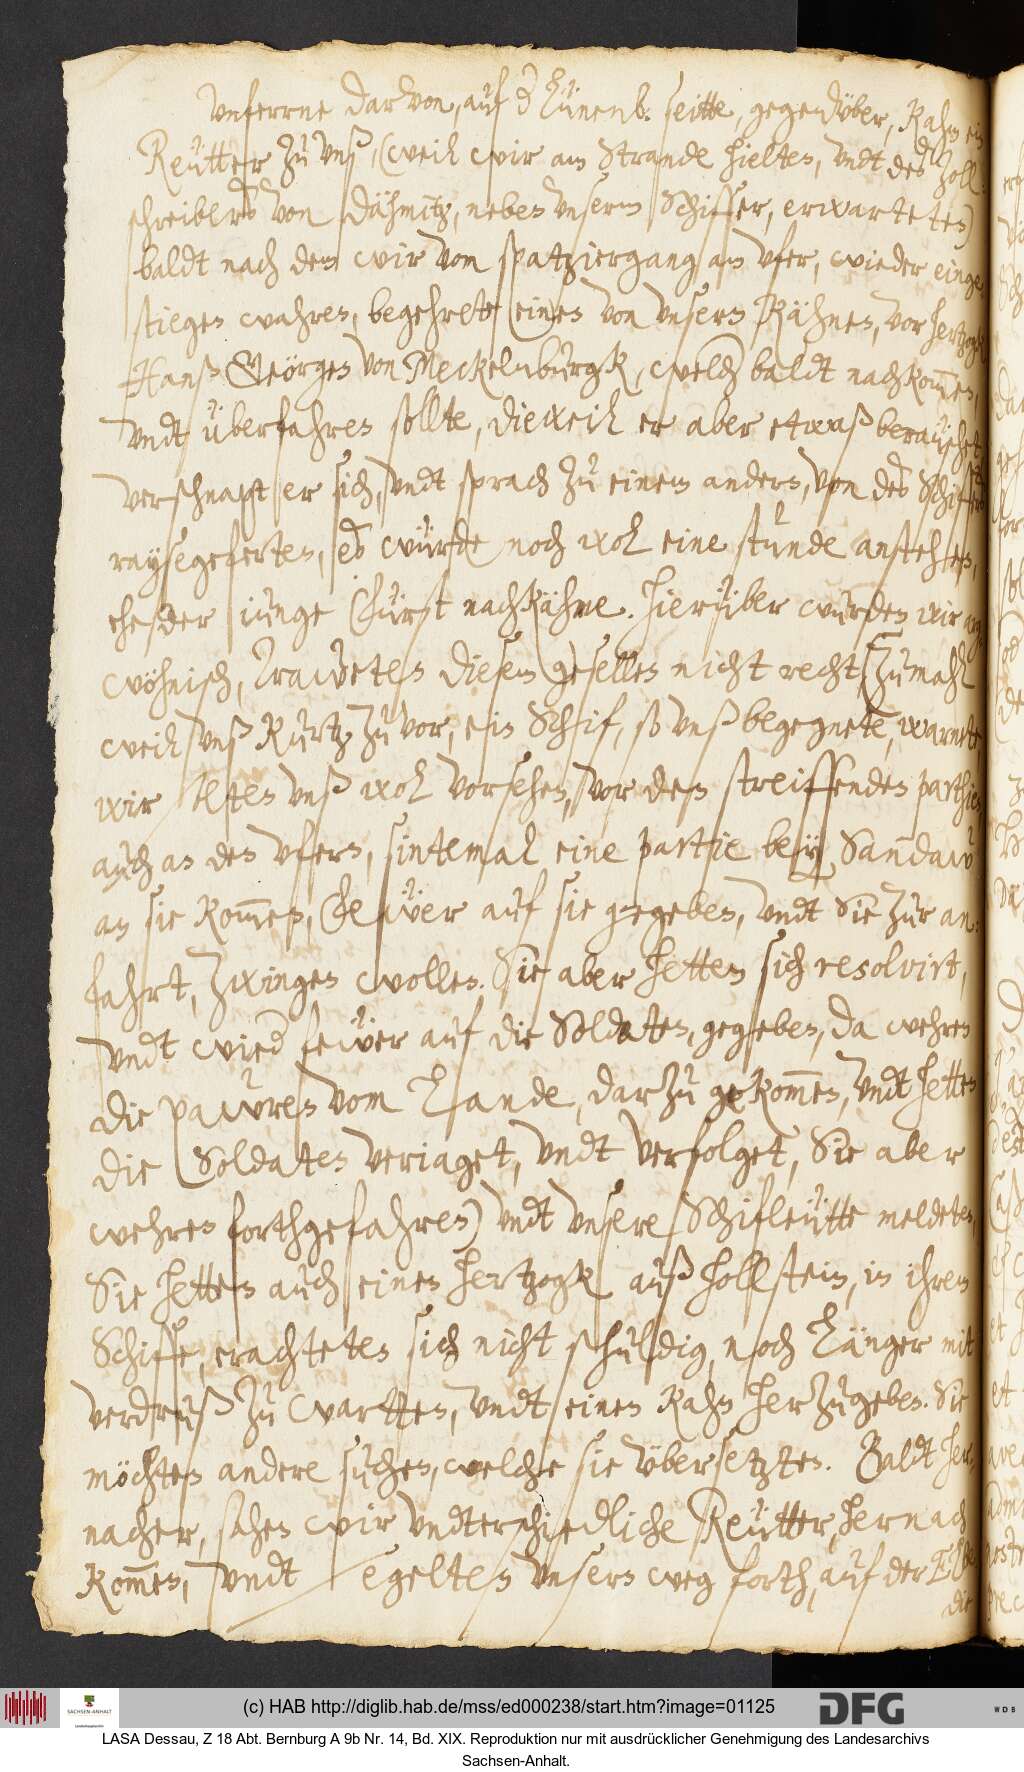 vnferrne darvon, auf der Lünenb. seitte, gegenüber, Kahm ein
Reütter zu vnß, (weil wir am Strande hielten, vndt des Zoll-
schreibers von Dähmitz, neben vnserm Schiffer, erwarteten)
baldt nach dem wir vom spatziergang am vfer, wieder einge
stiegen wahren, begehrete einen von vnsern Kähnen, vor hertzogk
Hanß Geörgen von Meckelnburgk, welcher baldt nachkommen,
vndt überfahren sollte, dieweil er aber etwaß berauschet
verschnapt er sich, vndt sprach zu einem andern, von des Schiffers
raysegeferten, es würde noch wol eine stunde anstehen,
ehe der iunge Fürst nachkähme. Hierüber wurden wir arg-
wöhnisch, Traweten diesem gesellen nicht recht, (zumahl
weil vnß Kurtz zuvor, ein Schif, so vnß begegnete, warnete
wir solten vnß wol vorsehen, vor den streiffenden parthien
auch an den vfern, sintemal eine partie bey Sandaw
an sie kommen, Fewer auf sie gegeben, vndt Sie zur an-
fahrt, zwingen wollen. Sie aber hetten sich resolvirt,
vndt wieder fewer auf die Soldaten, gegeben, da wehren
die pawren vom Lande, darzu gekommen, vndt hetten
die Soldaten veriaget, vndt verfolget, Sie aber
wehren forthgefahren) vndt vnsere Schifleütte meldeten,
Sie hetten auch einen hertzogk auß Hollstein, in ihrem
Schiffe, erachteten sich nicht schuldig, noch Länger mit
verdruß zu wartten, vndt einen Kahn herzugeben. Sie
möchten andere suchen, welche sie übersetzten. Baldt her-
nacher, sahen wir vndterschiedliche Reütter, hernach
kommen, vndt segelten vnsern weg forth, auf der Elbe
die
(c) HAB http://diglib.hab.de/mss/ed000238/start.htm?image=01125
SACHSEN-ANHALT
DFG
WDB
LASA Dessau, Z 18 Abt. Bernburg A 9b Nr. 14, Bd. XIX. Reproduktion nur mit ausdrücklicher Genehmigung des Landesarchivs
Sachsen-Anhalt.